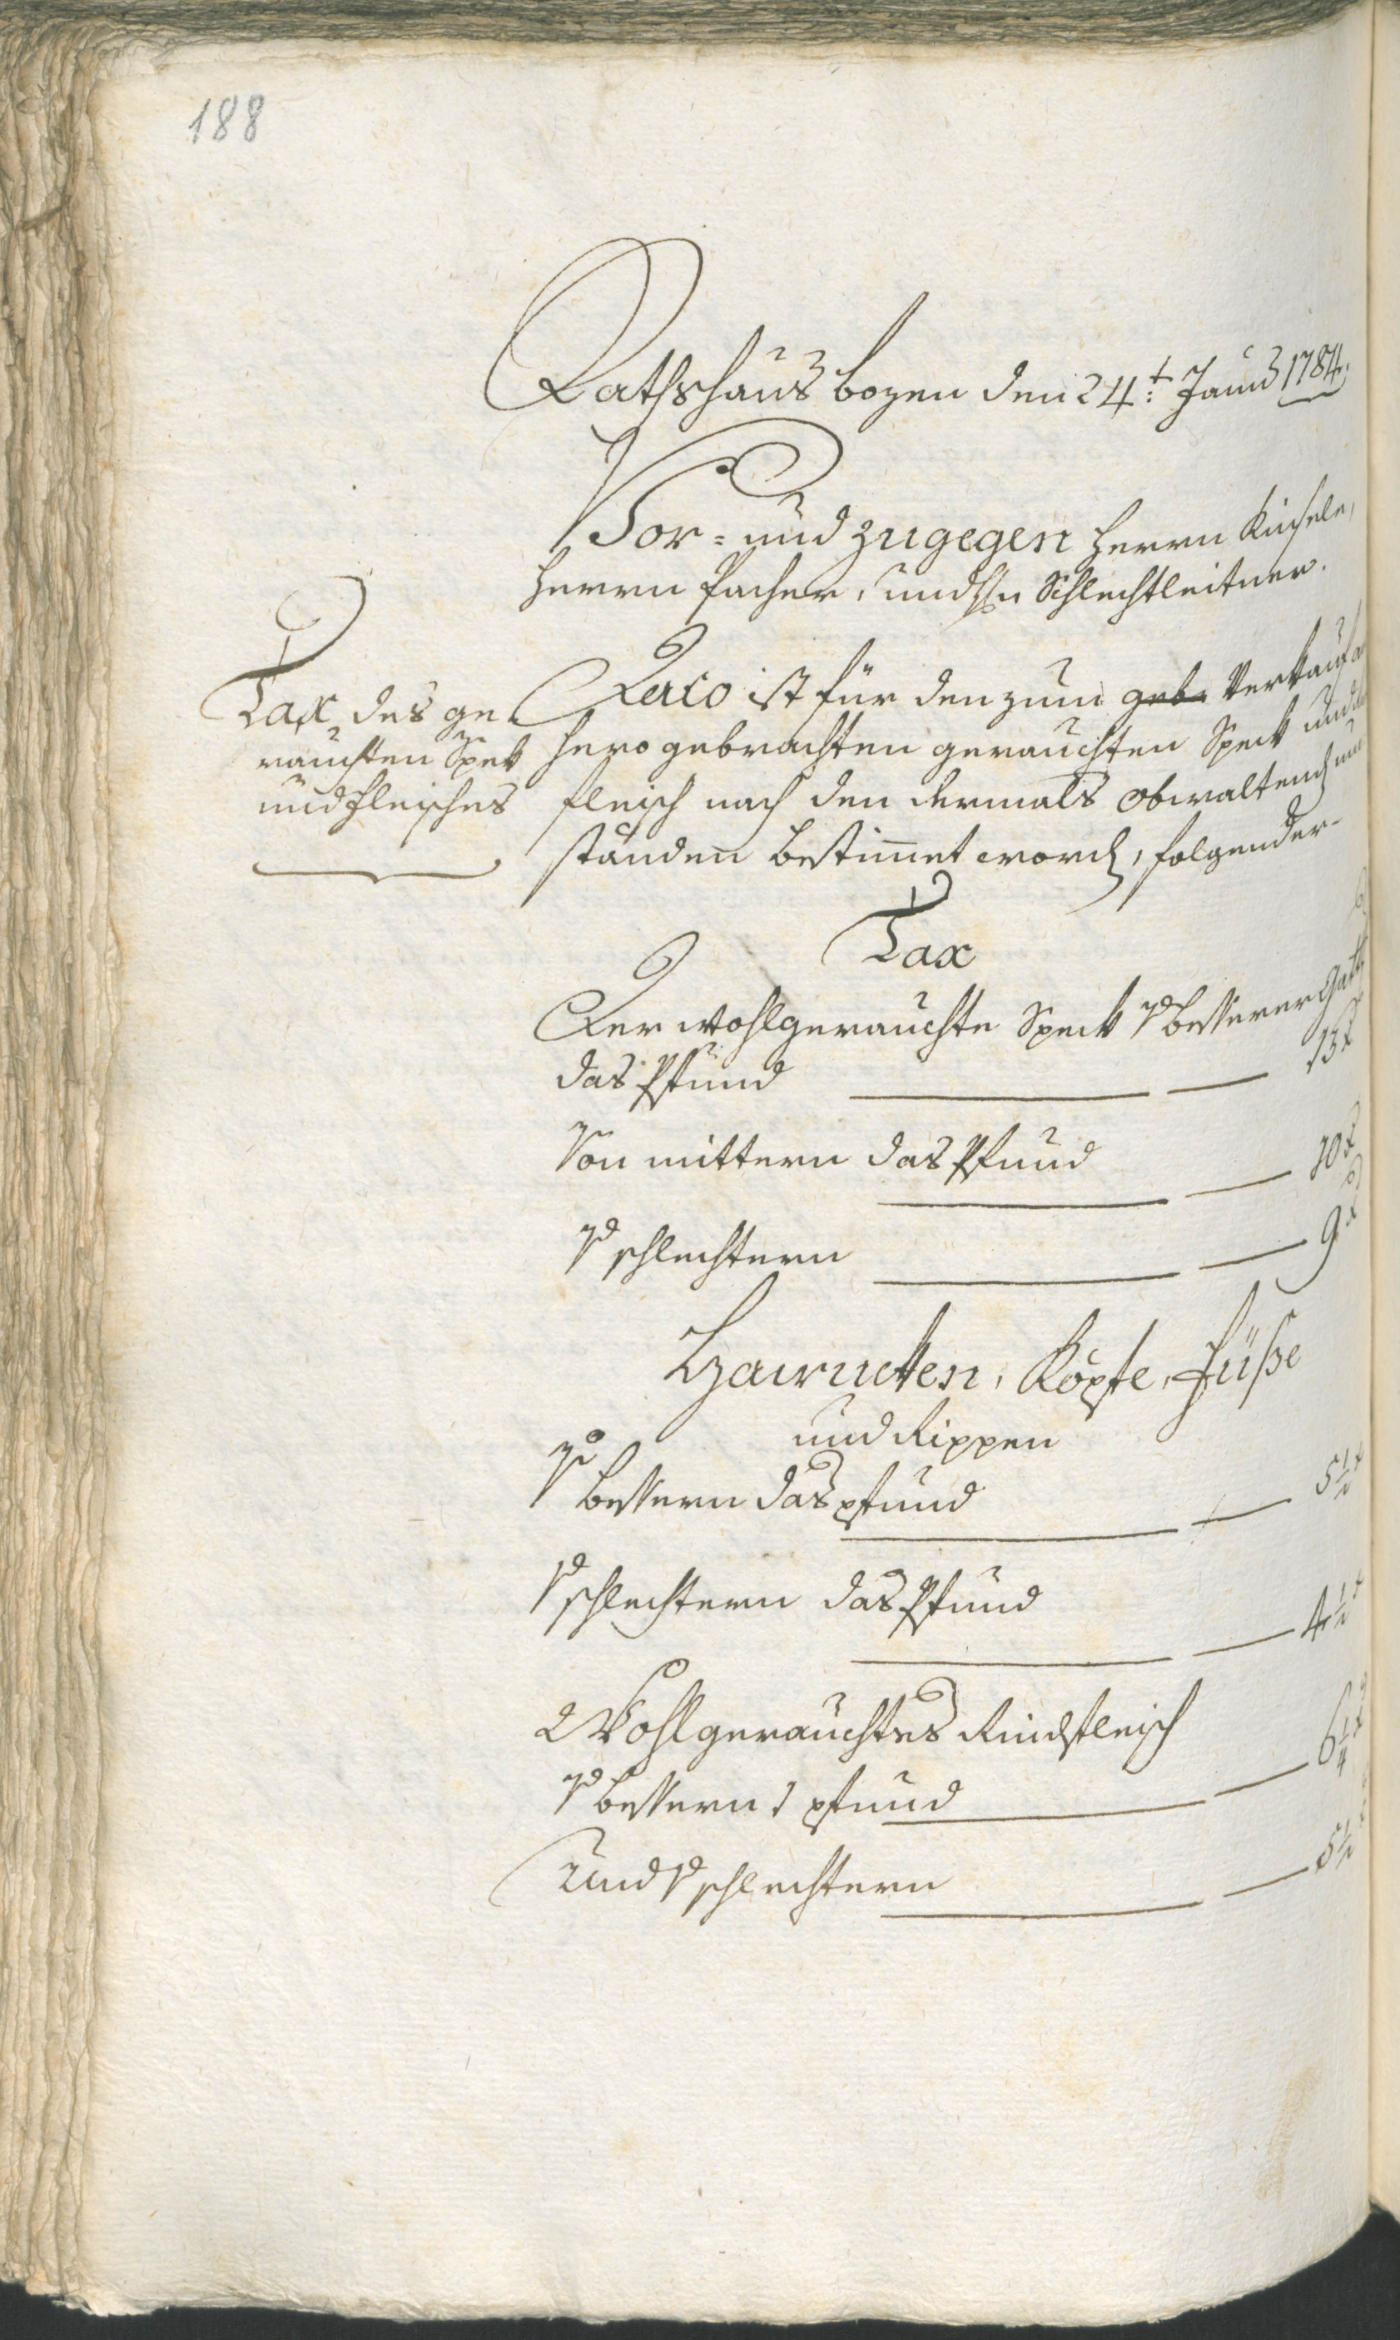 188
Rathshaus bozen den 24.t Jann 1784.
Vor- und zugegen herrn Kinsele,
herrn Pacher, und Hn Schlechtleitner.
Tax des ge-
rauchten Spek
und fleisches
Dato ist für den zum gebr Verkauf a
hero gebrachten gerauchten Speck und
fleisch nach den dermals obwaltend um
ständen bestimmet word, folgender-
Tax
Der wohlgerauchte Speck besserer Gatt
das Pfund 13 x
Von mittern das Pfund 10 x
schlechtern 9 x
Köpfe, Füße
und Rippen
bessern das pfund 5 1/2 x
schlechtern das Pfund 4 1/2 x
Wohlgerauchtes Rindfleisch
bessern 1 pfund 6 1/4
Und schlechtern 5 1/2